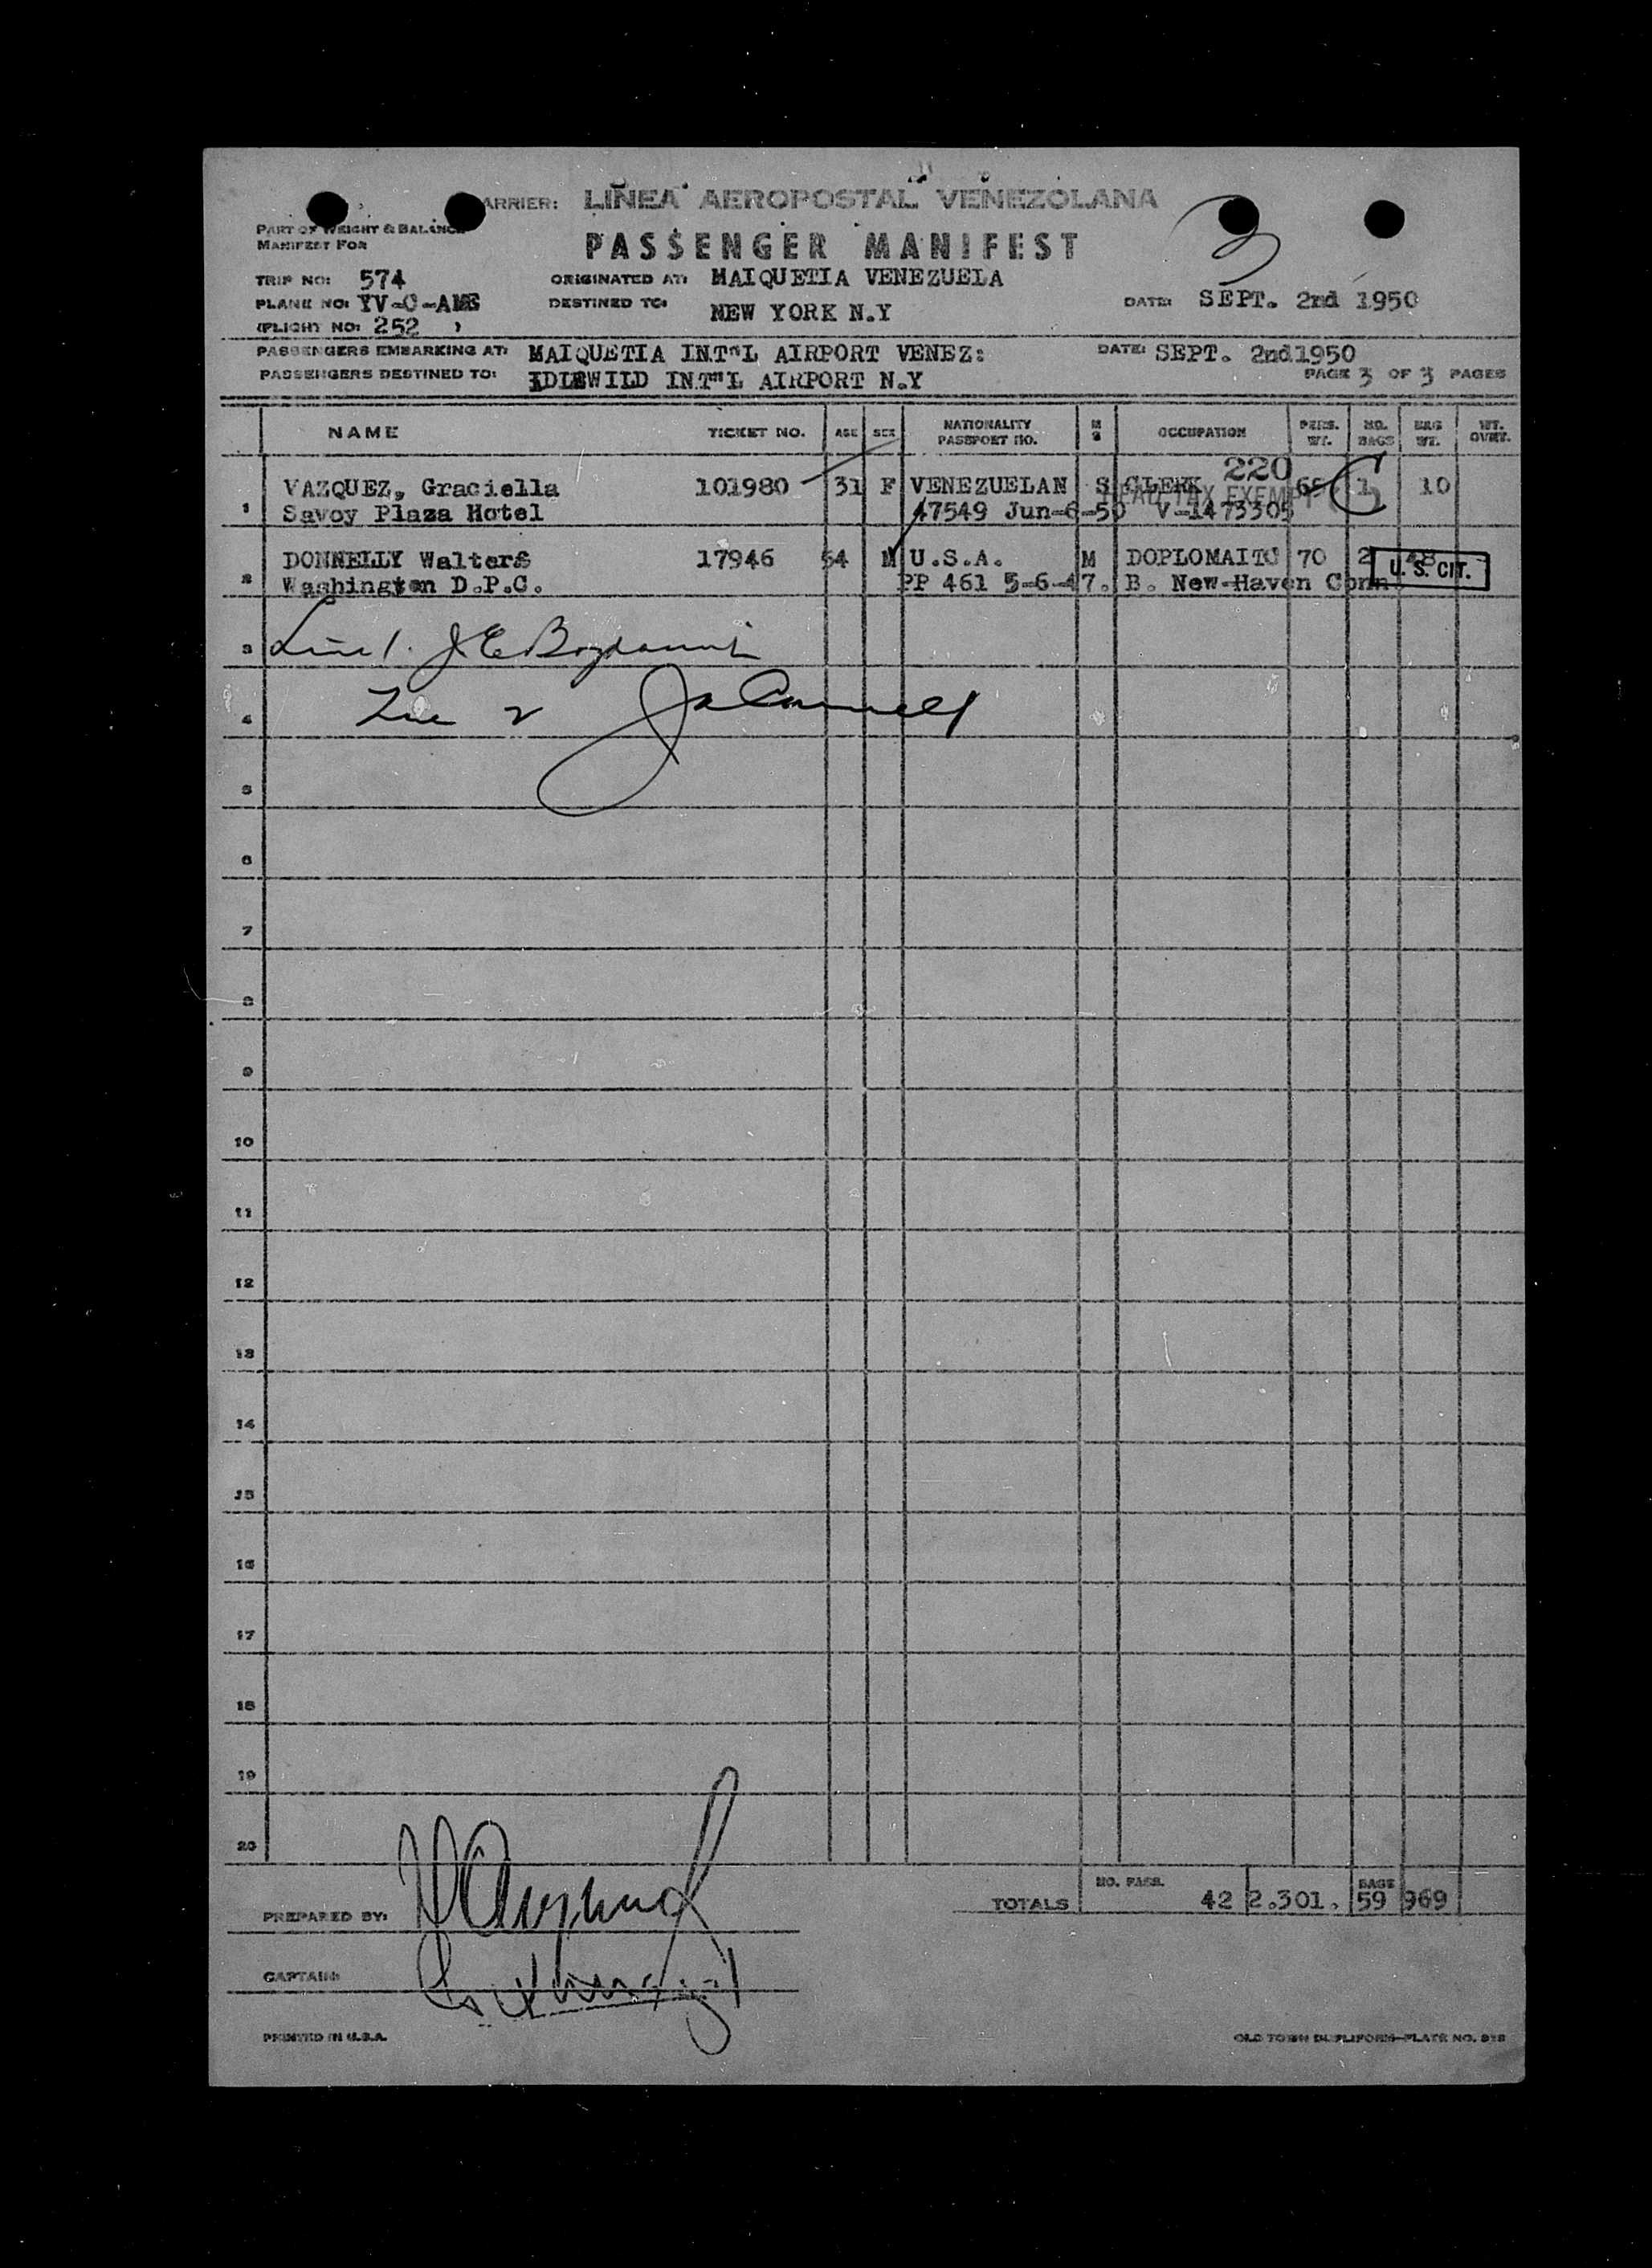 ARRIER: LINEA AEROPOSTAL VENEZOLANA
PART OF WEIGHT & BALANCE
MANIFEST FOR
PASSENGER MANIFEST
3
TRIP NO: 574
ORIGINATED AT: MAIQUETIA VENEZUELA
PLANE NO: YV-C-AMS
DESTINED TO: NEW YORK N.Y
DATE: SEPT. 2nd 1950
(FLIGHT NO: 252 )
PASSENGERS EMBARKING AT: MAIQUETIA INT"L AIRPORT VENEZ:
DATE: SEPT. 2nd1950
PASSENGERS DESTINED TO: IDLEWILD INT"L AIRPORT N.Y
PAGE 3 OF 3 PAGES
NAME TICKET NO. AGE SEX NATIONALITY PASSPORT NO. M S OCCUPATION PERS. WT. NO. BAGS BAG WT. WT. OVWT.
220
HEAD TAX EXEMPT
1 VAZQUEZ, Graciella 101980 31 F VENEZUELAN S CLERK 1 10
Savoy Plaza Hotel 47549 Jun-6-50 V-1473305
2 DONNELLY Walter 17946 54 M U.S.A. M DOPLOMAITC 70 2 48
U. S. CIT.
Washington D.P.C. PP 461 5-6-47. B. New-Haven Conn
3 Line 1. J E
4 Line 2
5
6
7
8
9
10
11
12
13
14
15
16
17
18
19
20
TOTALS NO. PASS. 42 2.301. BAGS 59 969
PREPARED BY:
CAPTAIN:
PRINTED IN U.S.A.
OLD TOWN DUPLIFORM—PLATE NO. 918